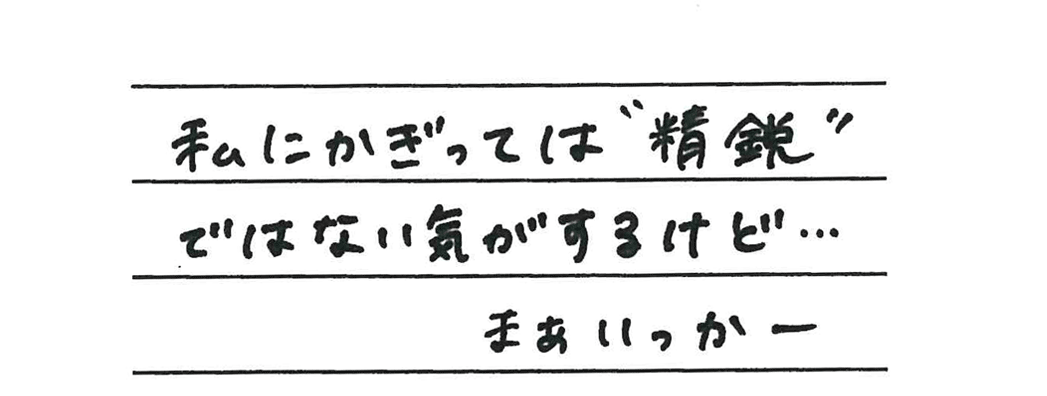 私にかぎっては“精鋭”
ではない気がするけど…
まぁいっかー